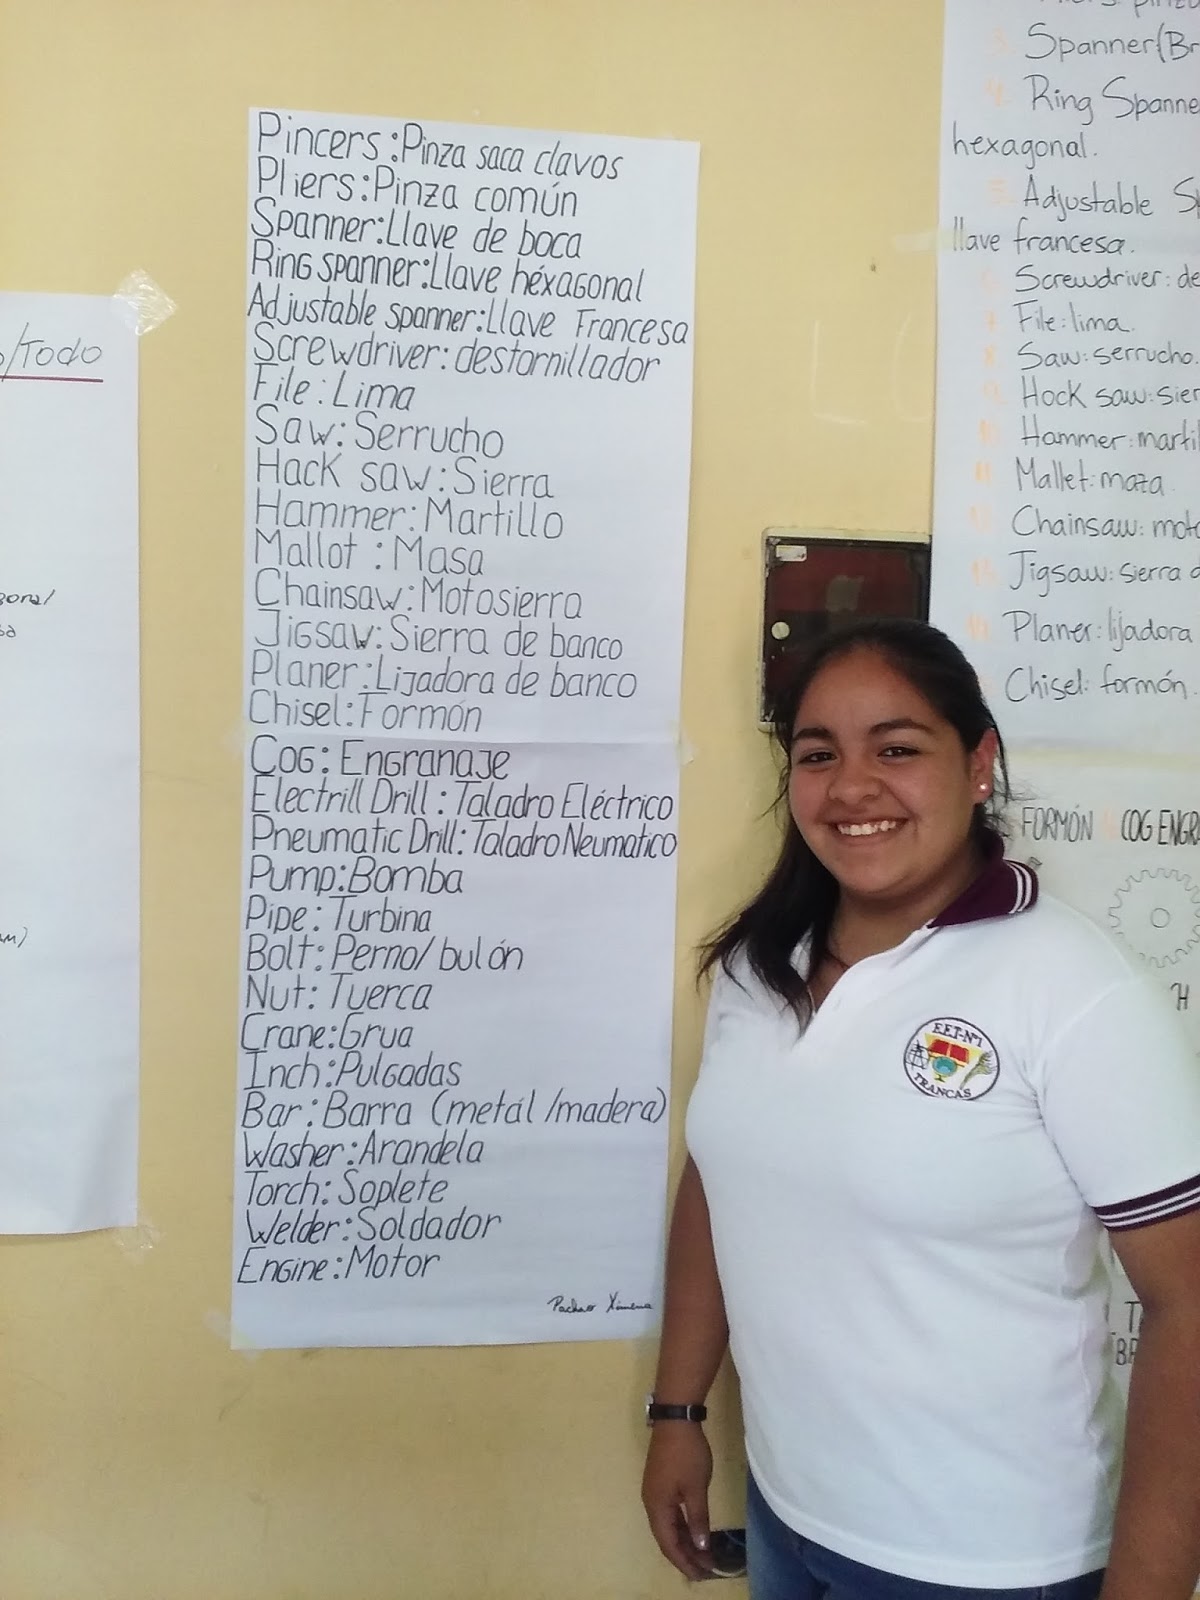 o/Todo
Pincers : Pinza saca clavos
Pliers : Pinza común
Spanner: Llave de boca
Ring spanner: Llave héxagonal
Adjustable spanner: Llave Francesa
Screwdriver: destornillador
File : Lima
Saw: Serrucho
Hack saw : Sierra
Hammer: Martillo
Mallot : Masa
Chainsaw: Motosierra
Jigsaw: Sierra de banco
Planer: Lijadora de banco
Chisel: Formón
Cog: Engranaje
Electrill Drill : Taladro Eléctrico
Pneumatic Drill: Taladro Neumatico
Pump: Bomba
Pipe : Turbina
Bolt: Perno/ bulón
Nut: Tuerca
Crane: Grua
Inch: Pulgadas
Bar: Barra (metál /madera)
Washer: Arandela
Torch: Soplete
Welder: Soldador
Engine: Motor
Ximena
3. Spanner(Br
4. Ring Spanne
hexagonal.
5. Adjustable
llave francesa.
Screwdriver: de
File: lima.
8. Saw: serrucho.
Hock saw: sier
10. Hammer: martil
11. Mallet: maza.
12. Chainsaw: moto
13. Jigsaw: sierra d
14. Planer: lijadora
Chisel: formón.
FORMÓN COG ENGR
H
E.E.T-Nº1
TRANCAS